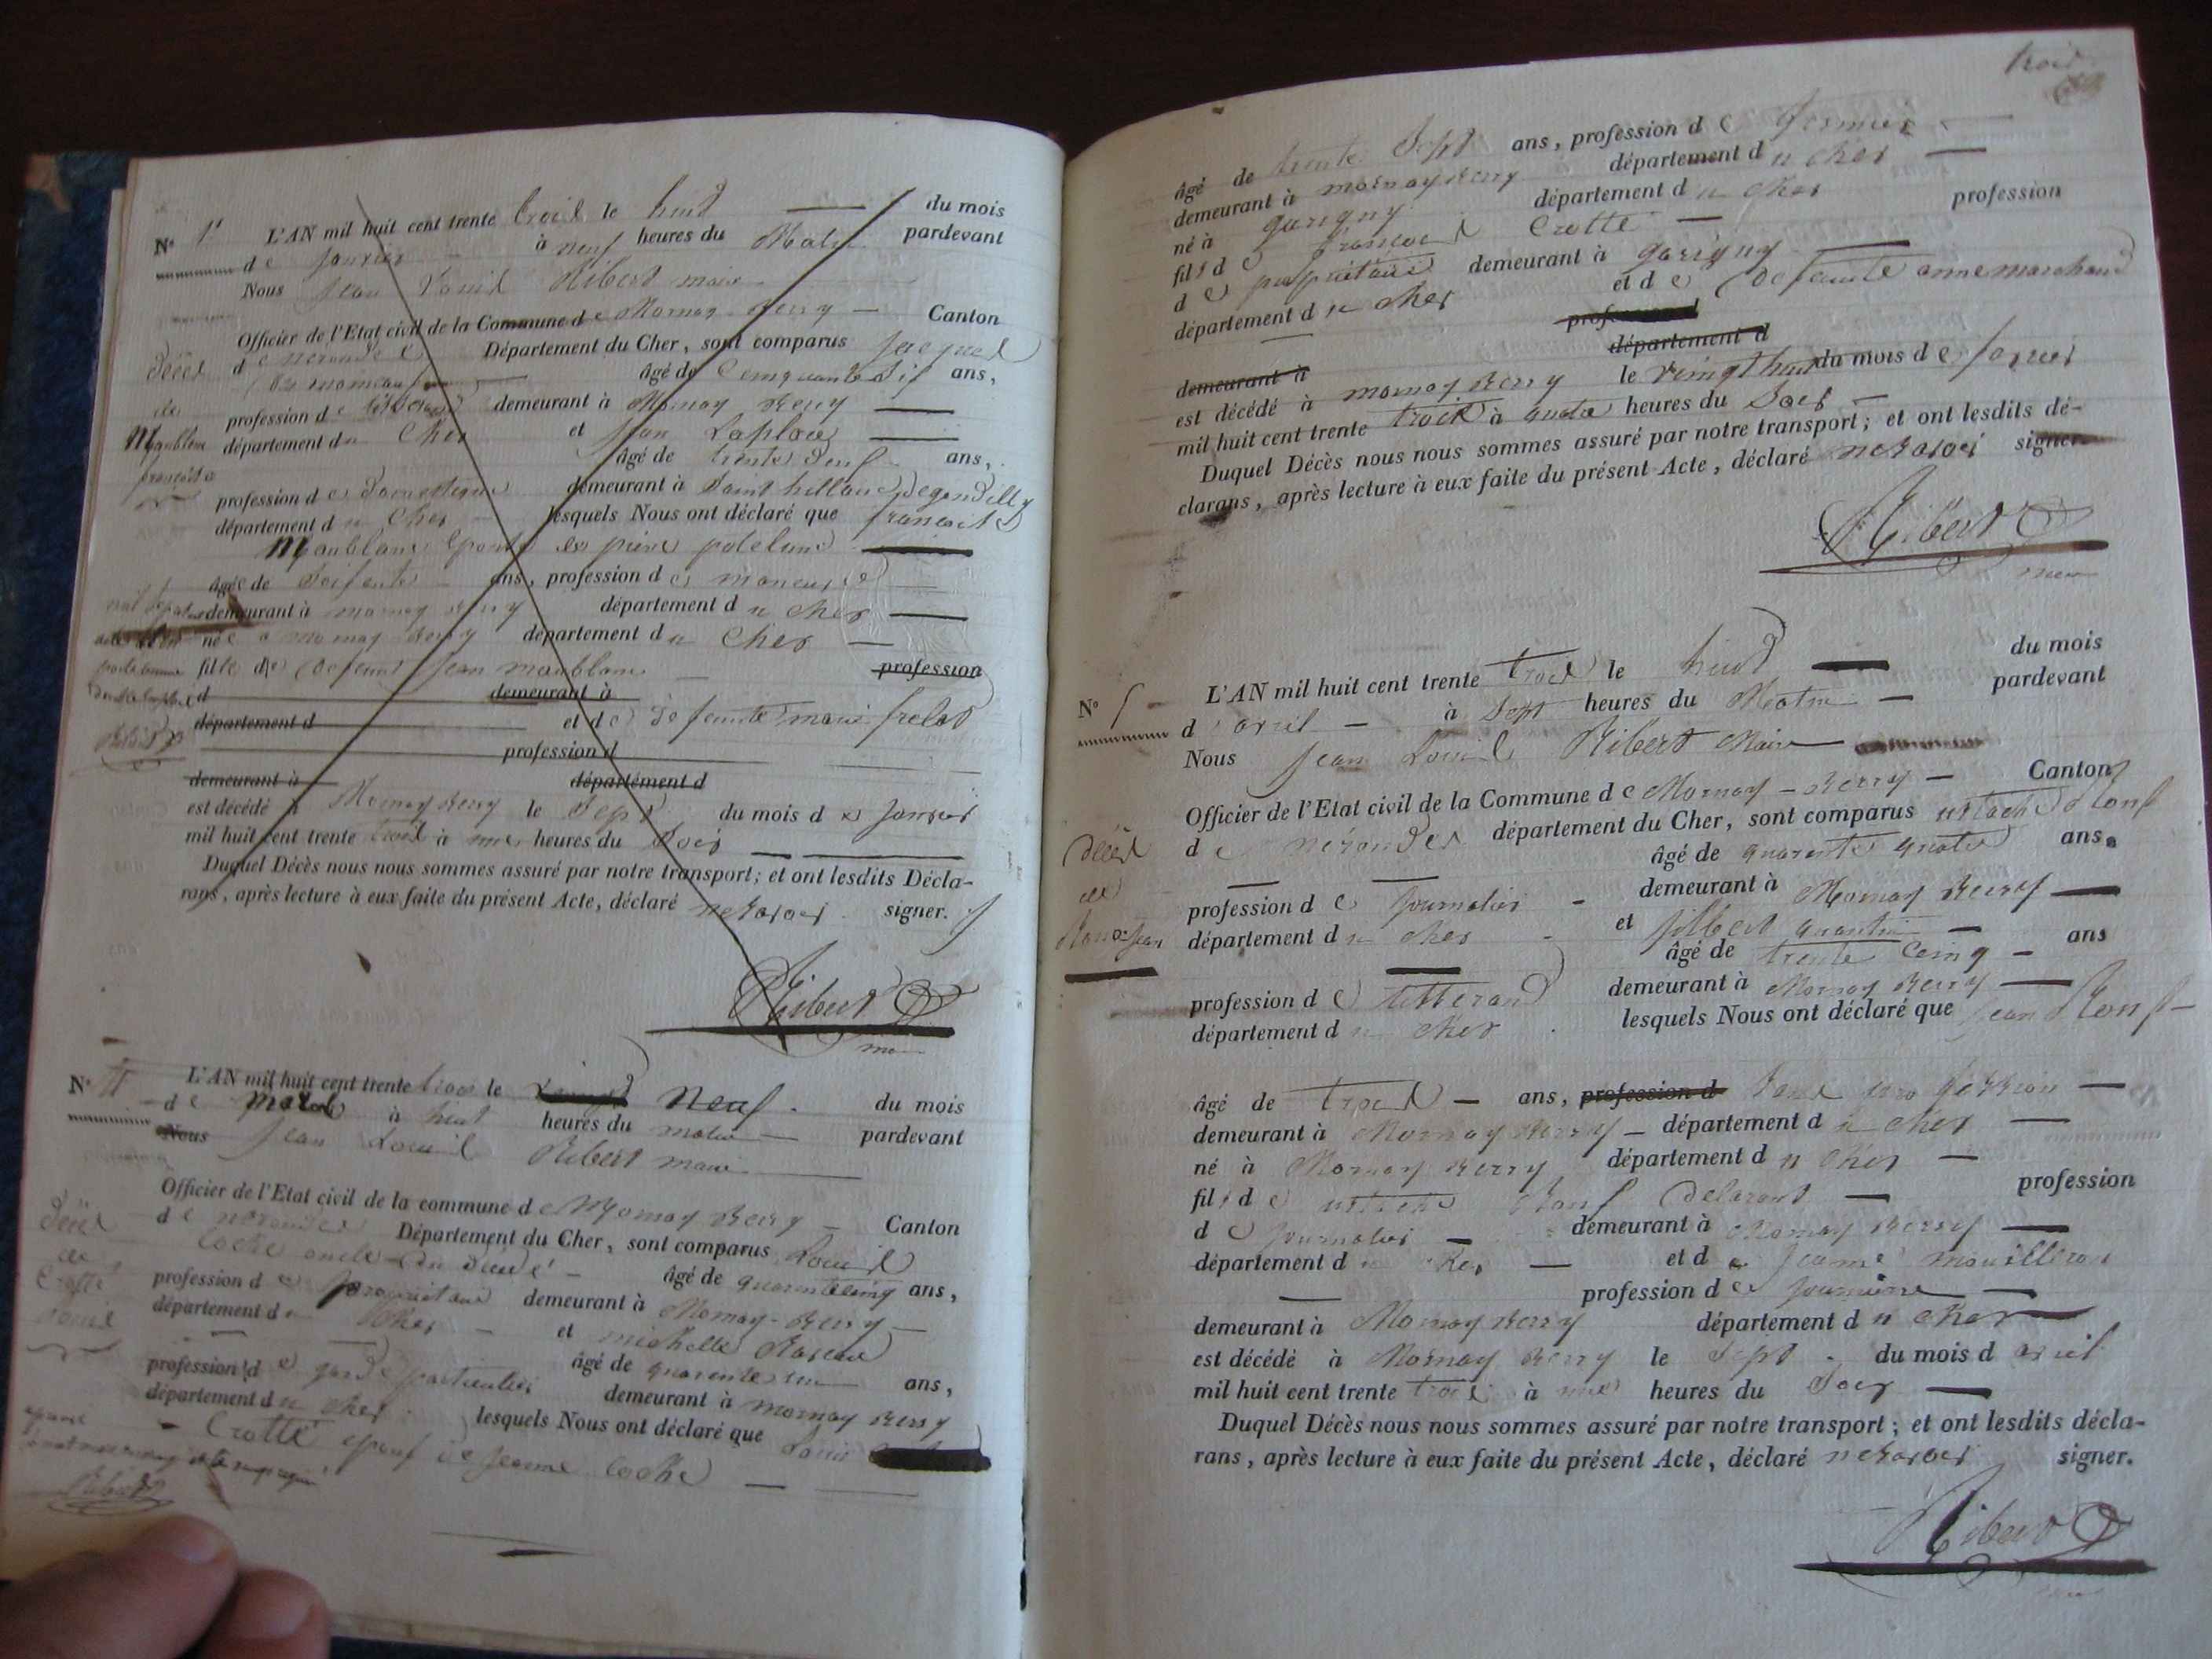 N° 1er L'AN mil huit cent trente trois le huit du mois
de janvier à neuf heures du Matin pardevant
Nous Jean Louis Ribert maire
Officier de l'Etat civil de la Commune de Mornay Berry Canton
de nerondes Département du Cher, sont comparus Jacques
âgé de Cinquante Six ans,
profession de tisserand demeurant à Mornay Berry
département du Cher et Jean Laplace
âgé de trente Neuf ans,
profession de Domestique demeurant à Saint hillaire De gondilly
département du Cher lesquels Nous ont déclaré que françoise
Maublanc épouse de pierre
âgée de Soisante ans, profession de
demeurant à mornay Berry département du cher
née à mornay Berry département du Cher
fille de Defunt Jean maublanc profession
d demeurant à
département d et de Defuinte marie
profession d
demeurant à département d
est décédé à Mornay Berry le Sept du mois de Janvier
mil huit cent trente trois à une heures du Soir
Duquel Décès nous nous sommes assuré par notre transport; et ont lesdits Décla-
rans, après lecture à eux faite du présent Acte, déclaré ne savoir signer.
Ribert
maire
Décès
de
Maublanc
françoise
Ribert
N° L'AN mil huit cent trente trois le neuf du mois
de Mars à huit heures du matin pardevant
Nous Jean Louis Ribert maire
Officier de l'Etat civil de la commune de Mornay Berry Canton
de nerondes Département du Cher, sont comparus Louis
coche oncle du Décédé âgé de quarente cinq ans,
profession de propriétaire demeurant à Mornay-Berry
département du Cher et michelle
âgé de quarente ans,
profession de garde particulier demeurant à mornay Berry
département du cher lesquels Nous ont déclaré que Louis
Crotté époux de Jeanne coche
Décès
de
Crotté
Louis
Ribert
trois
âgé de trente Sept ans, profession de fermier
demeurant à mornay Berry département du cher
né à garigny département du cher
fils de francois Crotté profession
de propriétaire demeurant à garigny
département du cher et de Defuinte anne marchand
profession d
demeurant à département d
est décédé à mornay Berry le vingt huit du mois de
mil huit cent trente trois à quatre heures du Soir
Duquel Décès nous nous sommes assuré par notre transport; et ont lesdits dé-
clarans, après lecture à eux faite du présent Acte, déclaré ne savoir signer
Ribert
maire
N° 5 L'AN mil huit cent trente trois le huit du mois
d'avril à Sept heures du Matin pardevant
Nous Jean Louis Ribert Maire
Officier de l'Etat civil de la Commune de Mornay-Berry Canton
de nérondes département du Cher, sont comparus ustache
âgé de quarente quatre ans,
profession de Journalier demeurant à Mornay Berry
département du cher et jilbert quantin
âgé de trente Cinq ans
profession de tisserand demeurant à Mornay Berry
département du cher lesquels Nous ont déclaré que Jean
âgé de trois ans, profession d
demeurant à Mornay Berry département du cher
né à Mornay Berry département du cher
fils de ustache Delarant profession
de Journalier demeurant à Mornay Berry
département du cher et de Jeanne
profession de
demeurant à Mornay Berry département du cher
est décédé à Mornay Berry le Sept du mois d avril
mil huit cent trente trois à une heures du Soir
Duquel Décès nous nous sommes assuré par notre transport; et ont lesdits décla-
rans, après lecture à eux faite du présent Acte, déclaré ne savoir signer.
Ribert
Décès
de
Jean